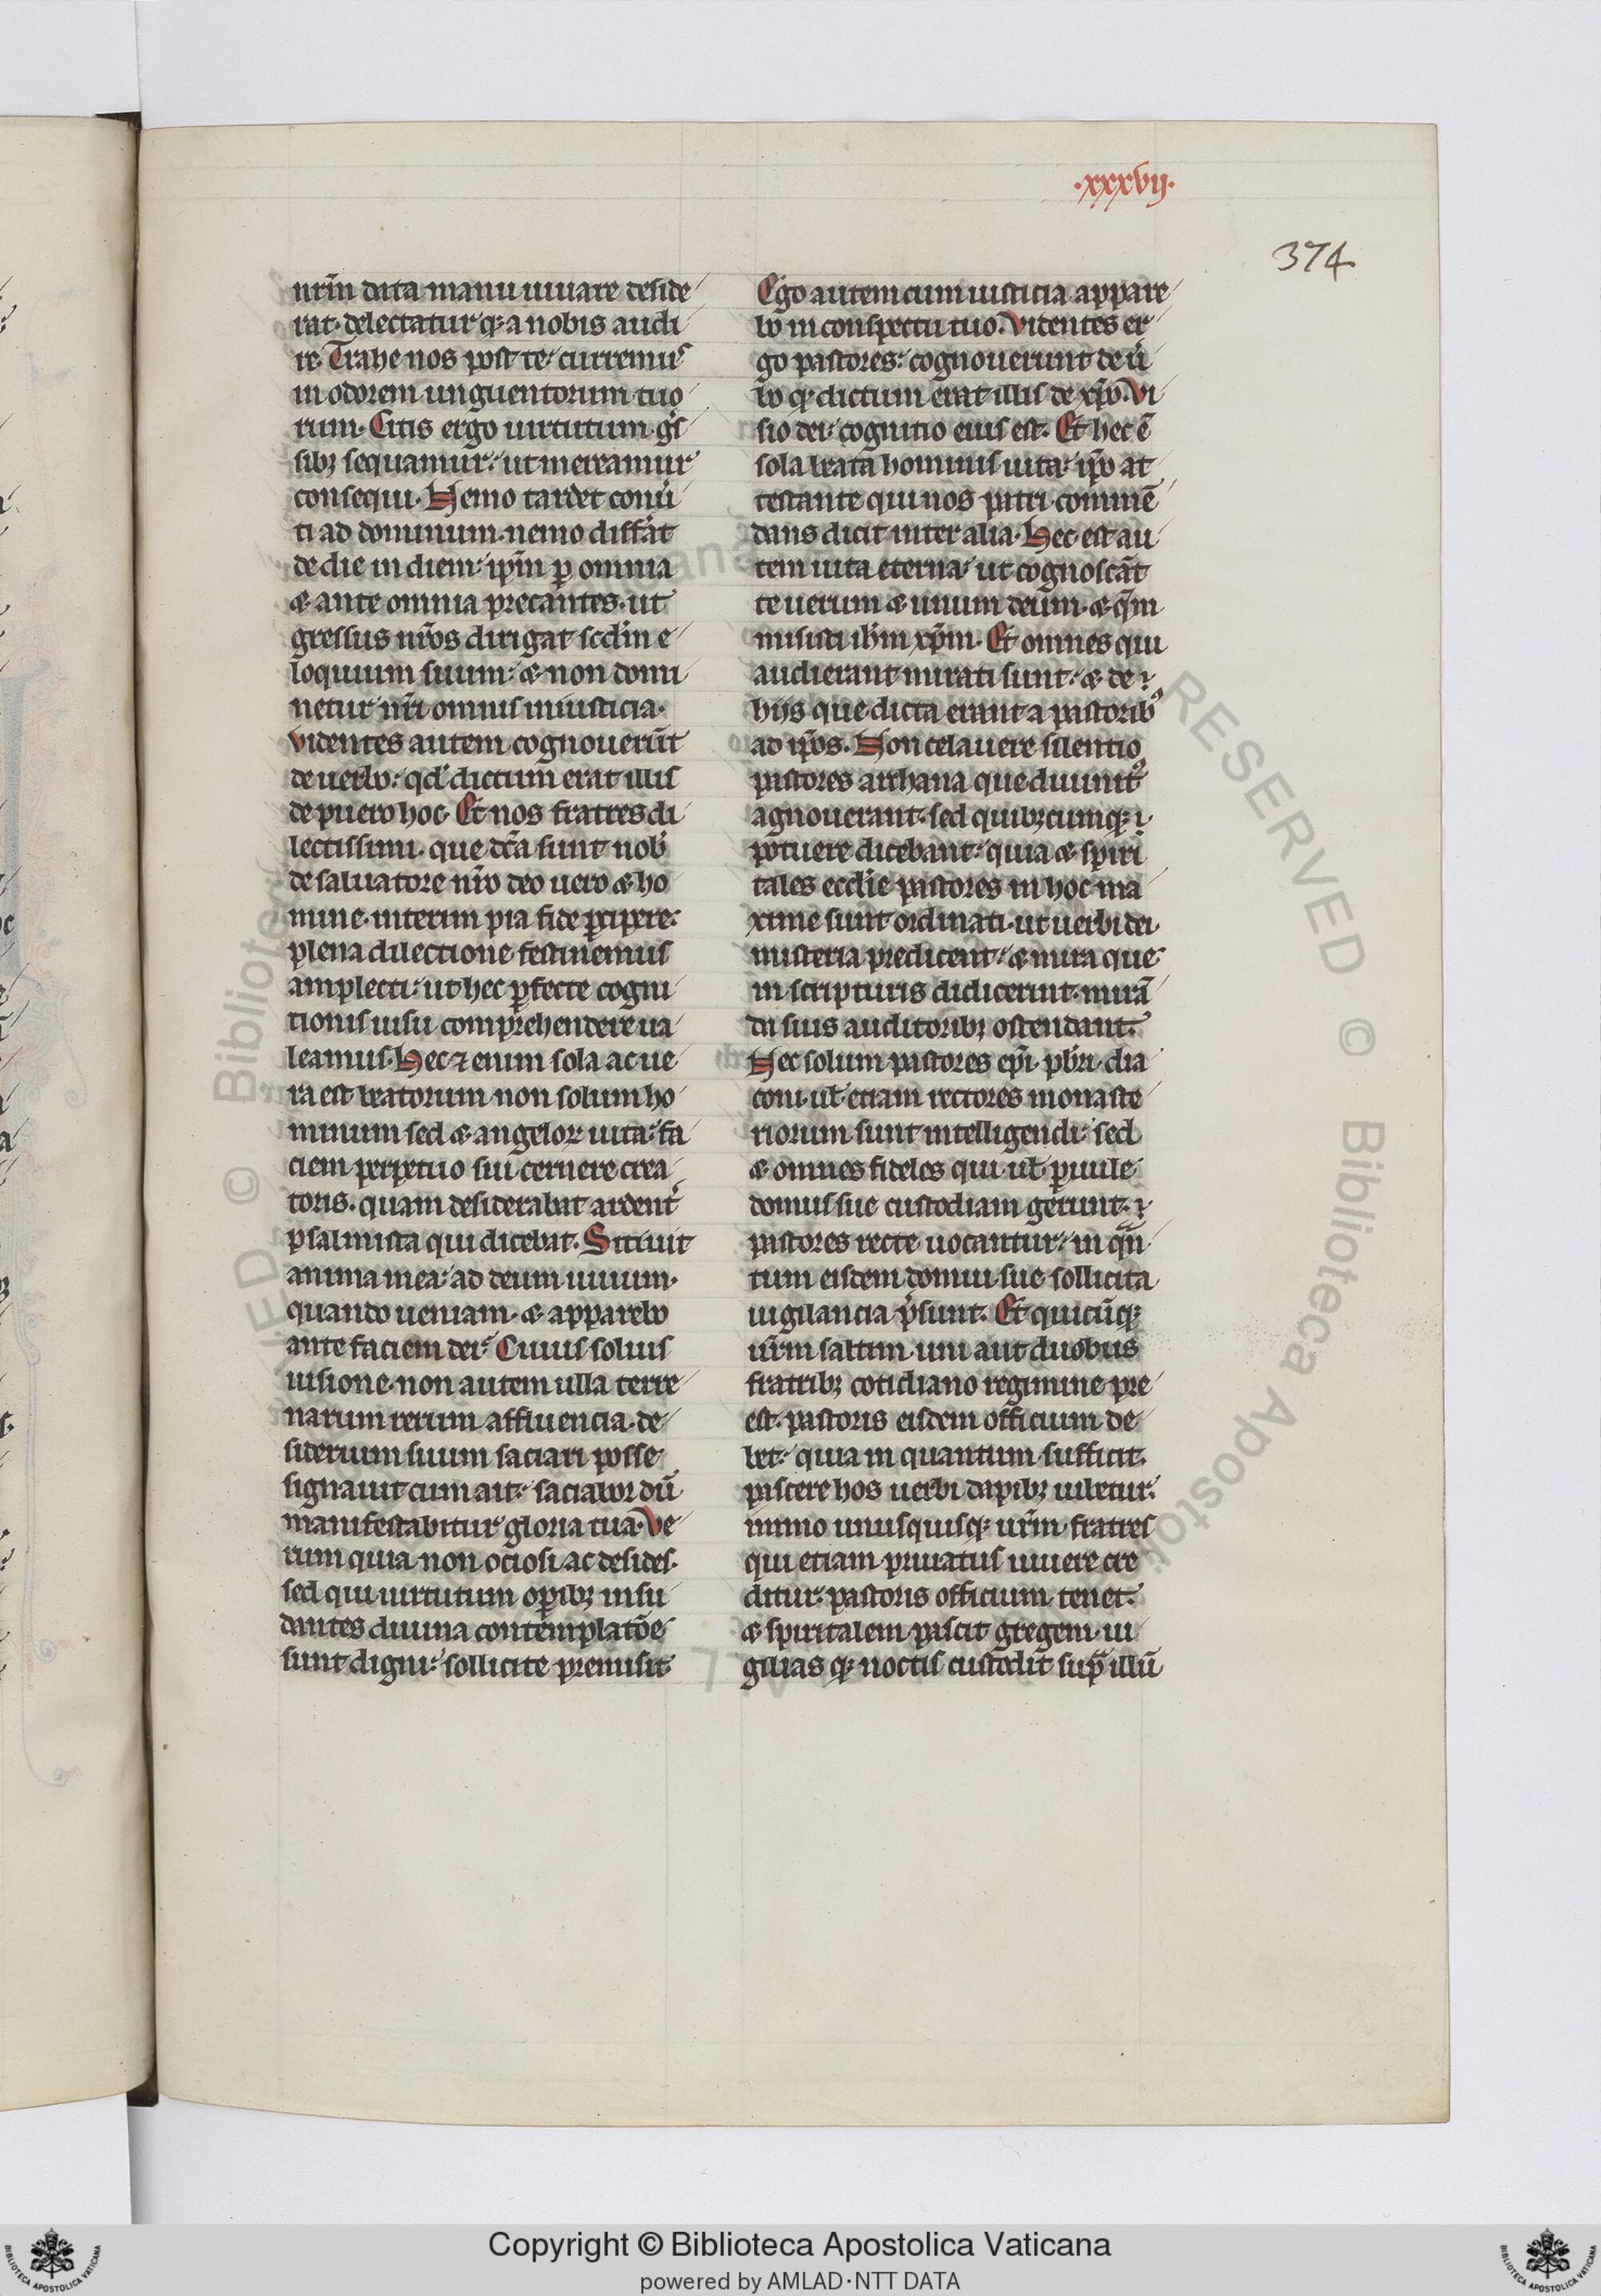 ·xxxvij·
374
nr̃m data manu iuuare deside
rat· delectatur q; a nobis audi
re· Trahe nos post te· curremus
in odorem unguentorum tuo
rum· Citis ergo uirtutum g̾s
sibꝫ sequamur· ut mereamur
consequi· Nemo tardet conu̾
ti ad dominum· nemo diffe̾at
de die in diem· ip̃m ꝑ omnia
& ante omnia precantes· ut
gressus nr̃os dirigat scd̾m e
loquium suum· & non domi
netur nr̃i omnis iniusticia·
Videntes autem cognouerũt
de uerbo· qd̾ dictum erat illis
de puero hoc· Et nos fratres di
lectissimi· que dc̃a sunt nob̾
de saluatore nr̃o deo uero & ho
mine· interim pia fide ꝑcipere·
plena dilectione festinemus
amplecti· ut hec ꝑfecte cogni
tionis uisu comprehendere ua
leamus· Hec ⁊ enim sola ac ue
ra est beatorum non solum ho
minum sed & angeloꝝ uita· fa
ciem perpetuo sui cernere crea
toris· quam desiderabat ardent̾
psalmista qui dicebat· Sitiuit
anima mea· ad deum uiuum·
quando ueniam· & apparebo
ante faciem dei· Cuius solius
uisione· non autem ulla terre
narum rerum affluencia· de
siderium suum saciari posse
signauit cum ait· saciabor dũ
manifestabitur gloria tua· Ve
rum quia non ociosi ac desides·
sed qui uirtutum oꝑibꝫ insu
dantes diuina contemplatõe
sunt digni· sollicite premisit
Ego autem cum iusticia appare
bo in conspectu tuo· Videntes er
go pastores· cognouerunt de u̾
bo q; dictum erat illis de xp̃o· Vi
sio dei· cognitio eius est· Et hec ẽ
sola beata hominis uita· ip̃o at
testante qui nos patri commẽ
dans dicit inter alia· Hec est au
tem uita eterna· ut cognoscãt
te uerum & unum deum· & q̃m
misisti ih̃m xp̃m· Et omnes qui
audierant mirati sunt· & de
hijs que dicta erant a pastoribꝰ
ad ip̃os· Non celauere silentio
pastores archana que diuinitꝰ
agnouerant· sed quibꝫcumq;
potuere dicebant· quia & spiri
tales eccl̾ie pastores in hoc ma
xime sunt ordinati· ut uerbi dei
misteria predicent· & mira que
in scripturis didicerint· mirã
da suis auditoribꝫ ostendant·
Nec solum pastores ep̃i· pb̾ri· dia
coni· ul̾ etiam rectores monaste
riorum sunt intelligendi· sed
& omnes fideles qui ul̾ ꝑuule
domus sue custodiam gerunt·
pastores recte uocantur· in qũ
tum eisdem domui sue sollicita
uigilancia p̾sunt· Et quicũq;
ur̃m saltim· uni aut duobus
fratribꝫ cotidiano regimine pre
est· pastoris eisdem officium de
bet· quia in quantum sufficit·
pascere hos uerbi dapibꝫ iubetur·
immo unusquisq; ur̃m· fratres
qui etiam priuatus uiuere cre
ditur· pastoris officium tenet·
& spiritalem pascit gregem· ui
gilias q; noctis custodit suꝑ illũ
Copyright © Biblioteca Apostolica Vaticana
powered by AMLAD·NTT DATA